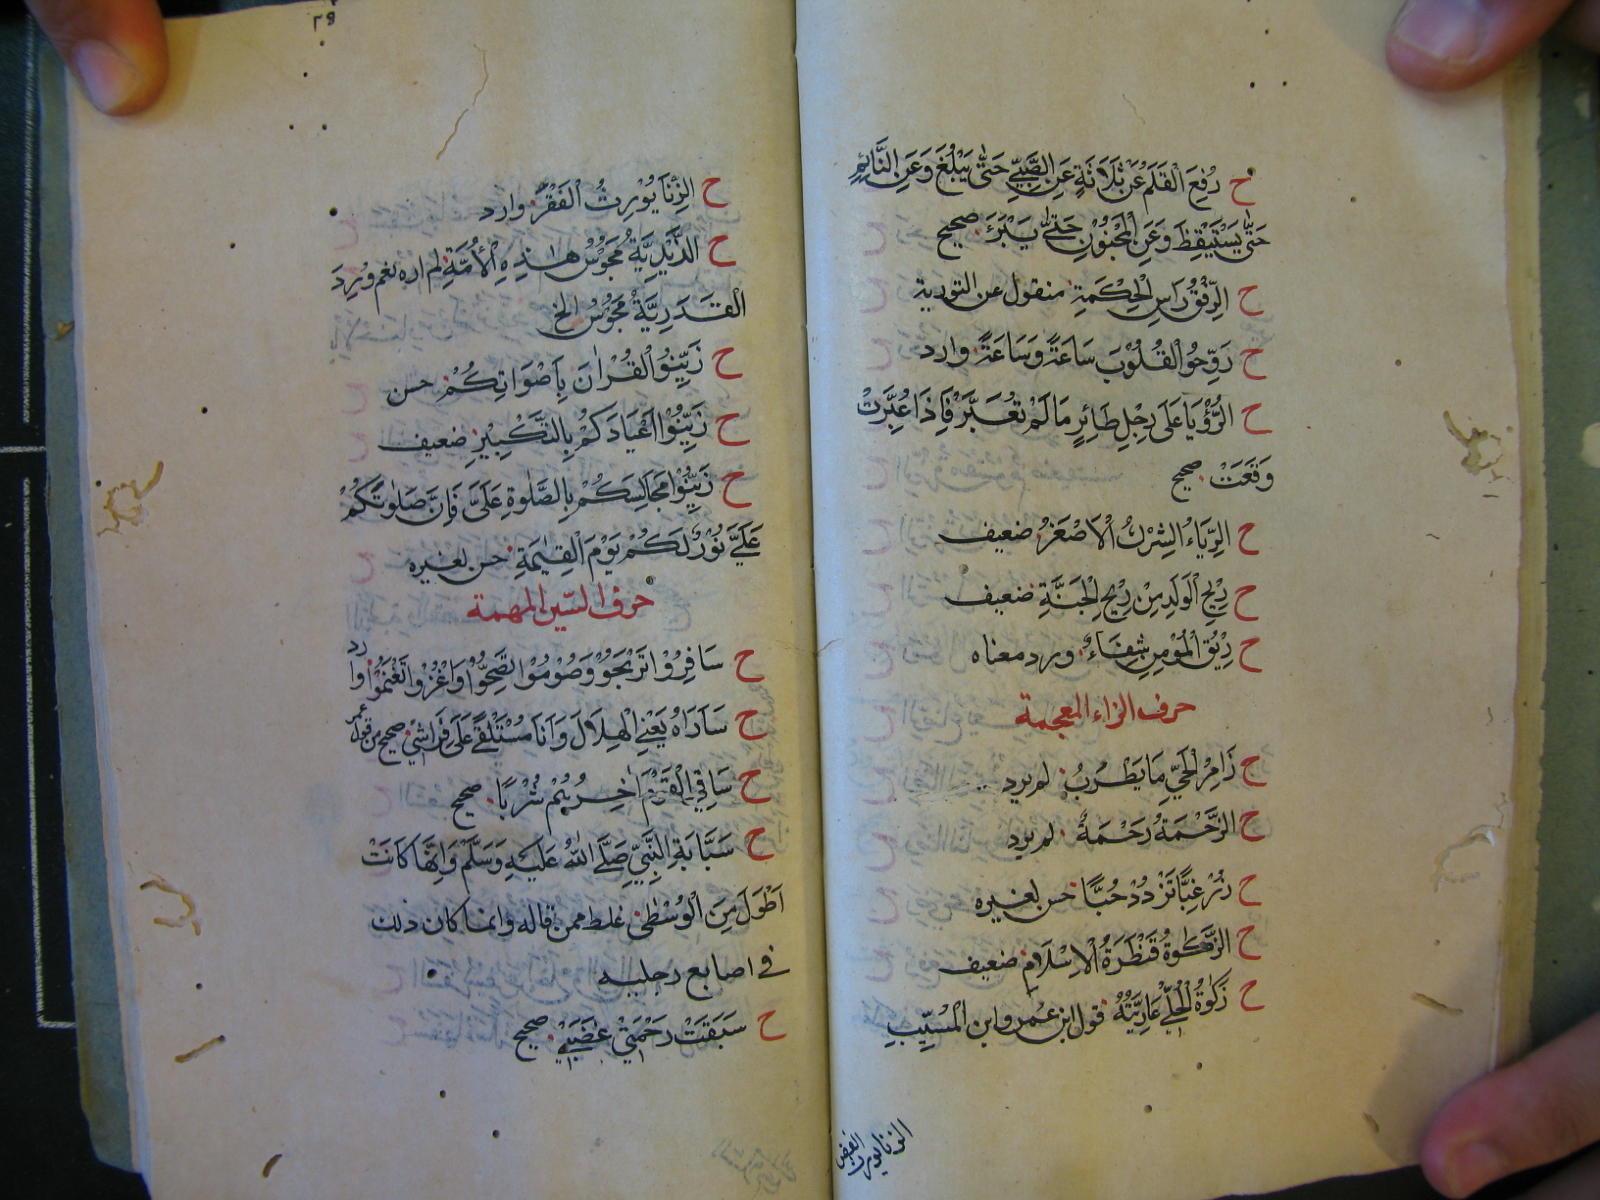 ح رُفِعَ الْقَلَمُ عَنْ ثَلَاثَةٍ عَنِ الصَّبِيِّ حَتَّى يَبْلُغَ وَعَنِ النَّائِمِ
حَتَّى يَسْتَيْقِظَ وَعَنِ الْمَجْنُوْنِ حَتَّى يَبْرَءَ صحيح
ح الرِّفْقُ رَاسُ الْحِكْمَةِ منقول عن التورية
ح رَوِّحُوا الْقُلُوْبَ سَاعَةً وَسَاعَةً وارد
ح الرُّؤْيَا عَلَى رِجْلِ طَائِرٍ مَا لَمْ تُعَبَّرْ فَاِذَا عُبِّرَتْ
وَقَعَتْ صحيح
ح الرِّيَاءُ الشِرْكُ الْاَصْغَرُ ضعيف
ح رِيْحُ الْوَلَدِ مِنْ رِيْحِ الْجَنَّةِ ضعيف
ح رِيْقُ الْمُؤْمِنِ شِفَاءٌ ورد معناه
حرف الزاء المعجمة
ح زَامِرُ الْحَيِّ مَا يَطْرُبُ لم يرد
ح الزَّحْمَةُ رَحْمَةٌ لم يرد
ح زُرْ غِبًّا تَزْدَدْ حُبًّا حسن لغيره
ح الزَّكٰوةُ قَنْطَرَةُ الْاِسْلَامِ ضعيف
ح زَكٰوةُ الْحُلِيِّ عَارِيَّتُهُ قول ابن عمر وابن الْمُسَيِّبِ
الزنا يورث الفقر
٢٩
ح الزِّنَا يُوْرِثُ الْفَقْرَ وارد
ح الزَّيْدِيَّةُ مَجُوْسُ هٰذِهِ الْاُمَّةِ لم اره نعم ورد
الْقَدَرِيَّةُ مَجُوْسُ الخ
ح زَيِّنُوا الْقُرْاٰنَ بِاَصْوَاتِكُمْ حسن
ح زَيِّنُوْا اَعْيَادَكُمْ بِالتَّكْبِيْرِ ضعيف
ح زَيِّنُوْا مَجَالِسَكُمْ بِالصَّلٰوةِ عَلَيَّ فَاِنَّ صَلٰوتَكُمْ
عَلَيَّ نُوْرٌ لَكُمْ يَوْمَ الْقِيٰمَةِ حسن لغيره
حرف السّين المهمة
ح سَافِرُوْا تَرْبَحُوْا وَصُوْمُوْا تَصِحُّوْا وَاغْزُوْا تَغْنَمُوْا وارد
ح سَاَرَاهُ يَعْنِي الْهِلَالَ وَاَنَا مُسْتَلْقٍ عَلَى فِرَاشِيْ صحيح من قول عمر
ح سَاقِي الْقَوْمِ اٰخِرُهُمْ شُرْبًا صحيح
ح سَبَّابَةِ النَّبِيِّ صَلَّى اللهُ عَلَيْهِ وَسَلَّمَ وَاِنَّهَا كَانَتْ
اَطْوَلَ مِنَ الْوُسْطٰى غلط ممن قاله وانما كان ذلك
في اصابع رجليه
ح سَبَقَتْ رَحْمَتِيْ غَضَبِيْ صحيح